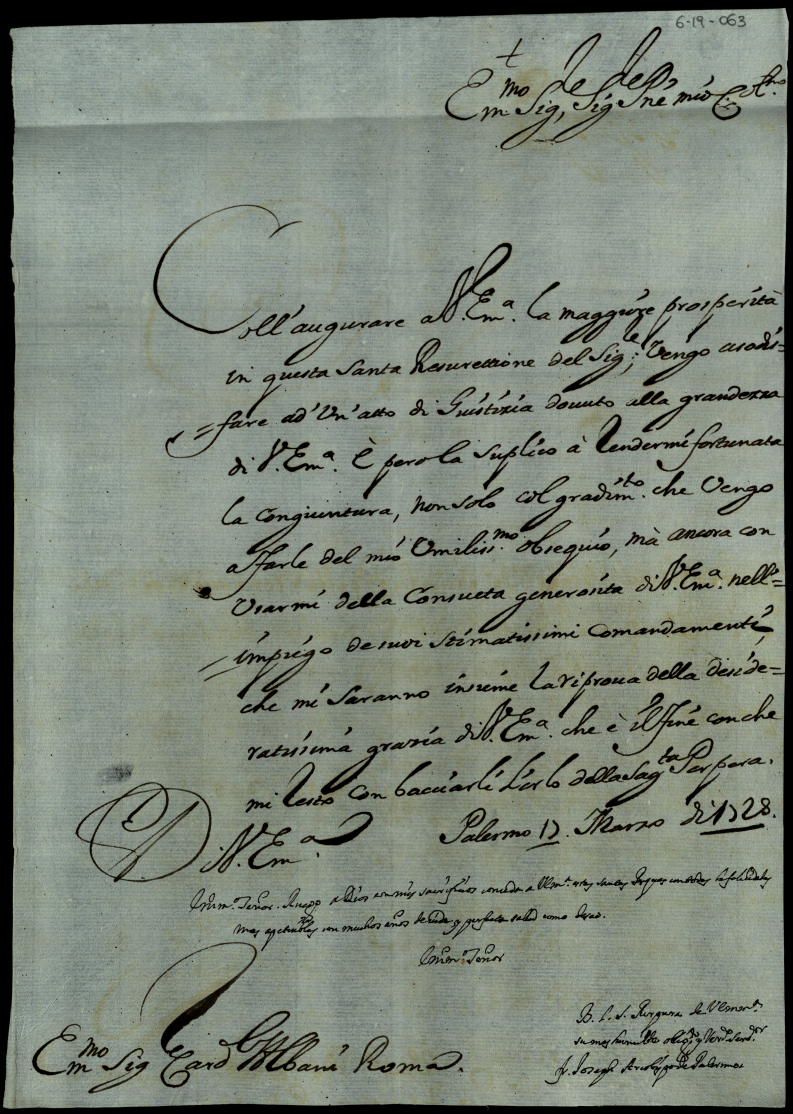 6-19-063
Em.mo Sig, Sig Pne mio
Coll'augurare a V. Em.a la maggiore prosperità
in questa Santa Resurettione del Sig.re; Vengo asodis=
=fare ad Un'atto di Giustizia douuto alla grandezza
di V. Em.a È pero la suplico à rendermi fortunata
la congiuntura, non solo col gradim.to che Vengo
a farle del mio Umiliss.mo obsequio, mà ancora con
Usarmi della Consueta generosita di V. Em.a nell'=
=impiego de suoi Stimatissimi Comandamenti,
che mi saranno insieme la riproua della deside=
ratissima grazia di V. Em.a che è il Fine con che
mi resto con bacciarli l'orlo della Sag.ta Porpora.
Di V. Em.a Palermo 17. Marzo di 1728.
Em.mo Señor. Ruego a Dios en mis sacrificios conceda a V. Em.a estas santas Pasquas con todas las felicidades
mas apetecibles con muchos años de vida, y perfecta salud como deseo.
Em.mo Señor
B. L. S. Purpura de V. Em.a
su mas humilde oblig.do y Verd.o Serd.or
Fr. Joseph Arcobispo de Palermo
Em.mo Sig Card Albani Roma.